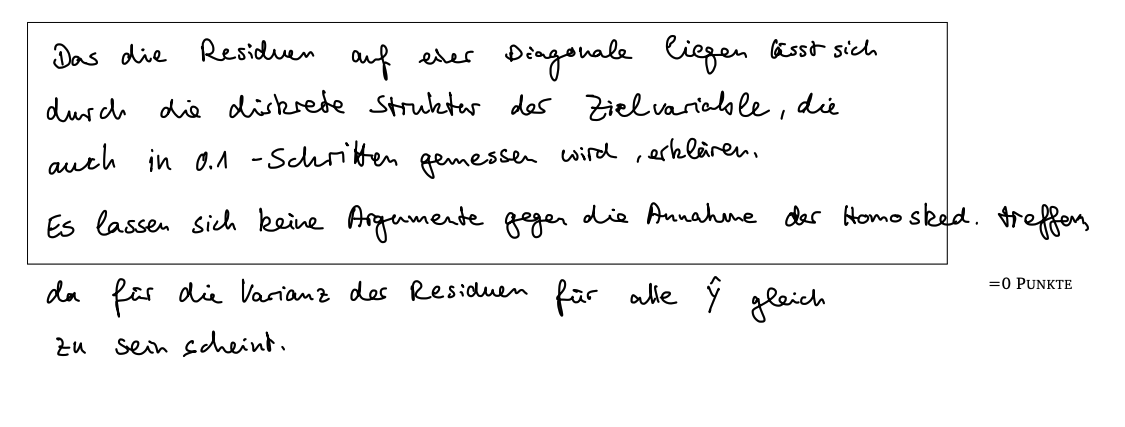 Das die Residuen auf einer Diagonale liegen lässt sich
durch die diskrete Struktur der Zielvariable, die
auch in 0.1 -Schritten gemessen wird, erklären.
Es lassen sich keine Argumente gegen die Annahme der Homosked. treffen,
da für die Varianz der Residuen für alle Ŷ gleich
=0 PUNKTE
zu sein scheint.